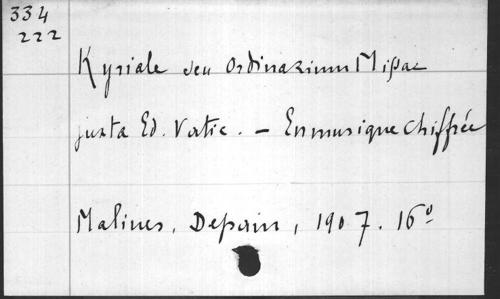 334
222
Kyriale seu Ordinarium Missae
juxta Ed. Vatic. – En musique chiffrée
Malines, Dessain, 1907. 16º